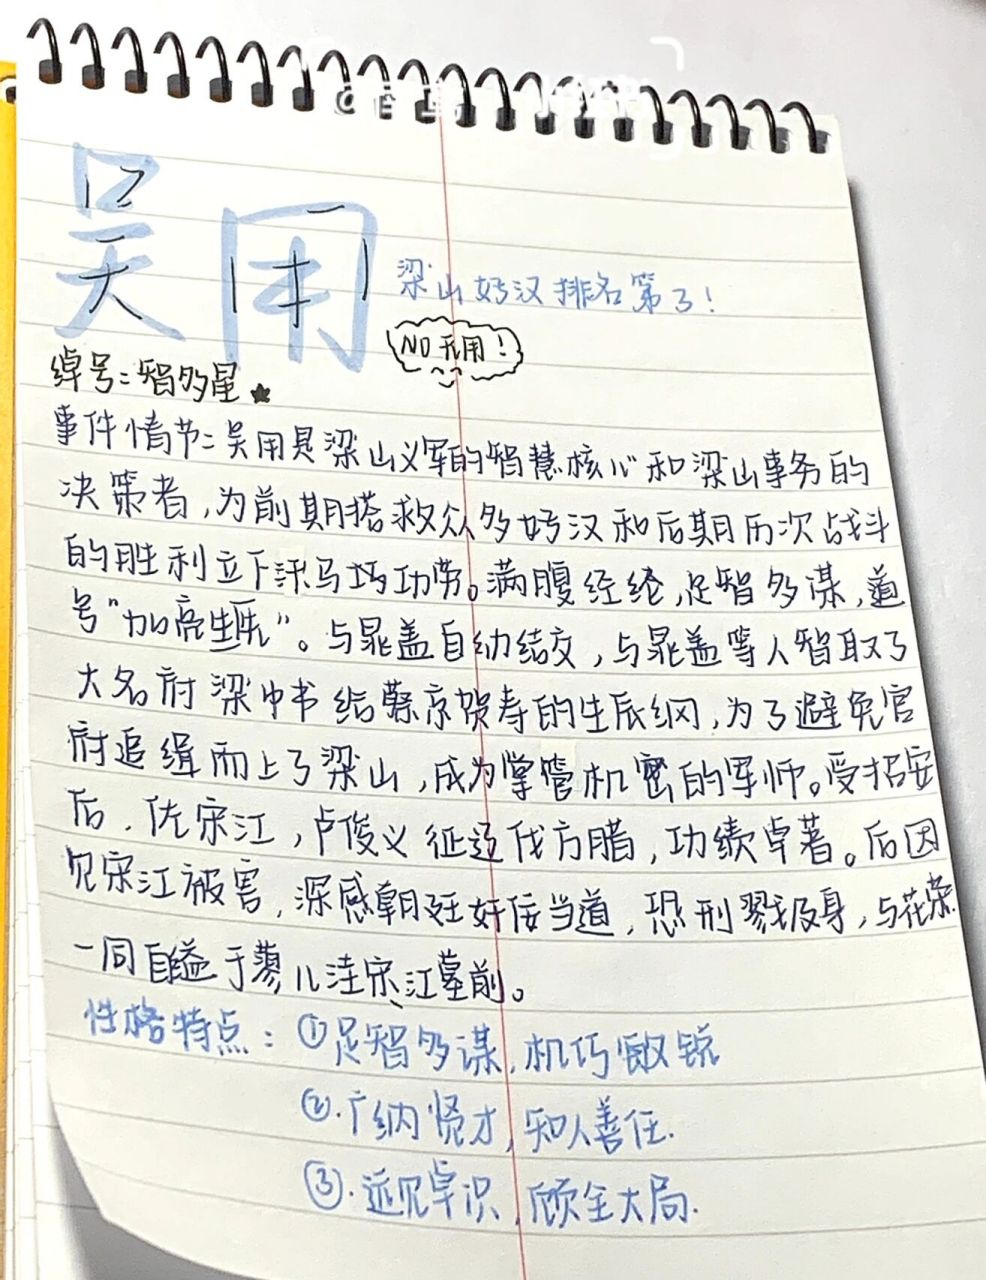 吴用
梁山好汉排名第3!
NO无用!
绰号:智多星★
事件情节:吴用是梁山义军的智慧核心和梁山事务的
决策者,为前期搭救众多好汉和后期历次战斗
的胜利立下汗马巧功劳。满腹经纶,足智多谋,道
号"加亮生先"。与晁盖自幼结交,与晁盖等人智取了
大名府梁中书给蔡京贺寿的生辰纲,为了避免官
府追缉而上了梁山,成为掌管机密的军师。受招安
后,佐宋江,卢俊义征辽伐方腊,功绩卓著。后因
见宋江被害,深感朝廷奸佞当道,恐刑戮及身,与花荣
一同自缢于蓼儿洼宋江墓前。
性格特点:①足智多谋,机巧敏锐
②.广纳贤才,知人善任.
③.远见卓识,顾全大局.